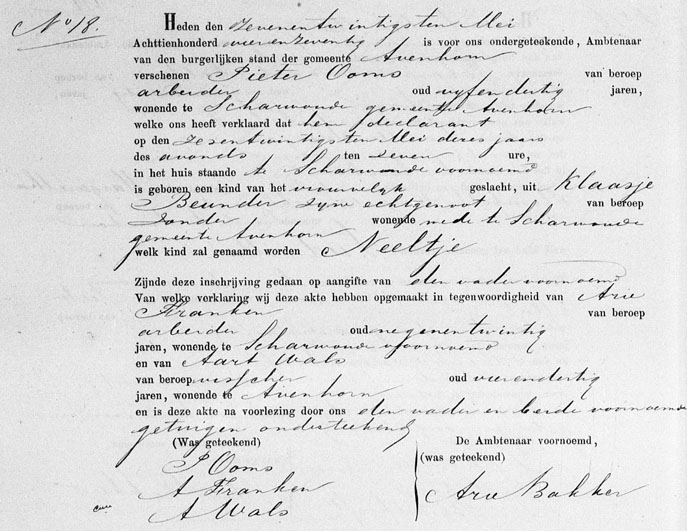 No 18.
Heden den zevenentwintigsten Mei
Achttienhonderd vierenzeventig is voor ons ondergeteekende, Ambtenaar
van den burgerlijken stand der gemeente Avenhorn
verschenen Pieter Ooms van beroep
arbeider oud vyfendertig jaren,
wonende te Scharwoude gemeente Avenhorn
welke ons heeft verklaard dat hem declarant
op den zesentwintigsten Mei dezes jaars
des avonds ten zeven ure,
in het huis staande te Scharwoude voornoemd
is geboren een kind van het vrouwelyk geslacht, uit Klaasje
Beunder zyne echtgenoot van beroep
zonder wonende mede te Scharwoude
gemeente Avenhorn
welk kind zal genaamd worden Neeltje
Zijnde deze inschrijving gedaan op aangifte van den vader voornoemd
Van welke verklaring wij deze akte hebben opgemaakt in tegenwoordigheid van Arie
Franken van beroep
arbeider oud negenentwintig
jaren, wonende te Scharwoude voornoemd
en van Aart Wals
van beroep visscher oud vierendertig
jaren, wonende te Avenhorn
en is deze akte na voorlezing door ons den vader en beide voornoemde
getuigen onderteekend
(Was geteekend) De Ambtenaar voornoemd,
(was geteekend)
P Ooms
A Franken Arie Bakker
A Wals